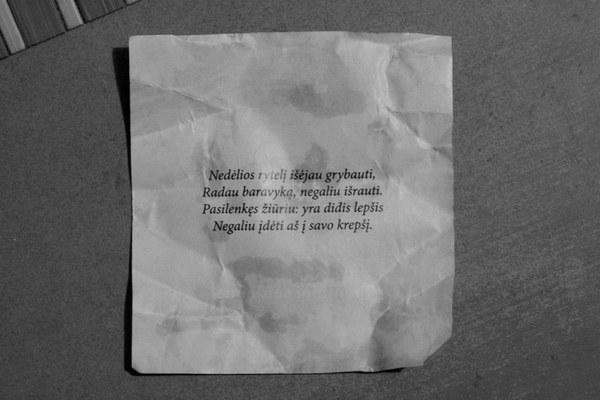 Nedėlios rytelį išėjau grybauti,
Radau baravyką, negaliu išrauti.
Pasilenkęs žiūriu: yra didis lepšis
Negaliu įdėti aš į savo krepšį.